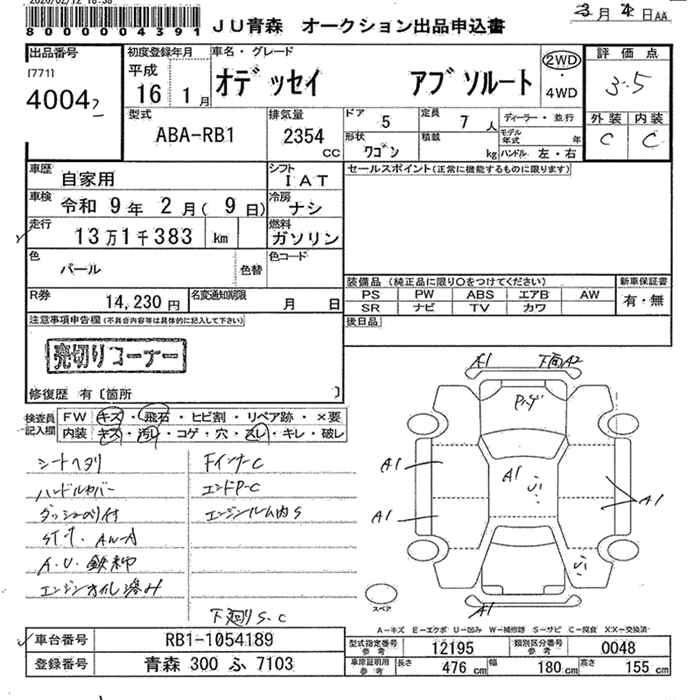 2020/02/12 18:38
8000004391 JU青森 オークション出品申込書 3月4日AA
出品番号 初度登録年月 車名・グレード 2WD 評価点
[771] 平成 オデッセイ アブソルート 3.5
4004 16 1月 ・4WD
型式 排気量 ドア 5 定員 7人 ディーラー・並行 外装 内装
ABA-RB1 2354 CC 形状 ワゴン 積載 kg モデル年式 年 C C
ハンドル 左・右
車歴 自家用 シフト IAT セールスポイント(正常に機能するものに限ります)
車検 令和 9年 2月( 9日) 冷房 ナシ
走行 13万1千383 km 燃料 ガソリン
色 パール 色替 色コード
装備品 (純正品に限り○をつけてください) 新車保証書
R券 14,230円 名変通知期限 月 日 PS PW ABS エアB AW 有・無
SR ナビ TV カワ
注意事項申告欄(不具合内容等は具体的に記入して下さい) 後日品
売切りコーナー
修復歴 有〔箇所 〕
A1 下面A2
検査員記入欄 FW キズ・飛石・ヒビ割・リペア跡・×要
内装 キズ・汚レ・コゲ・穴・スレ・キレ・破レ
シートヘタリ FインナーC
ハンドルカバー エンドP-C
ダッシュのり付 エンジンルーム内S
A1 A1 A1 A1
エンジンオイル滲み
下廻りS.C
スペア
A1
A-キズ E-エクボ U-凹み W-補修跡 S-サビ C-腐食 X・XX-交換済
車台番号 RB1-1054189 型式指定番号参考 12195 類別区分番号参考 0048
登録番号 青森 300 ふ 7103 車庫証明用参考 長さ 476cm 幅 180cm 高さ 155cm